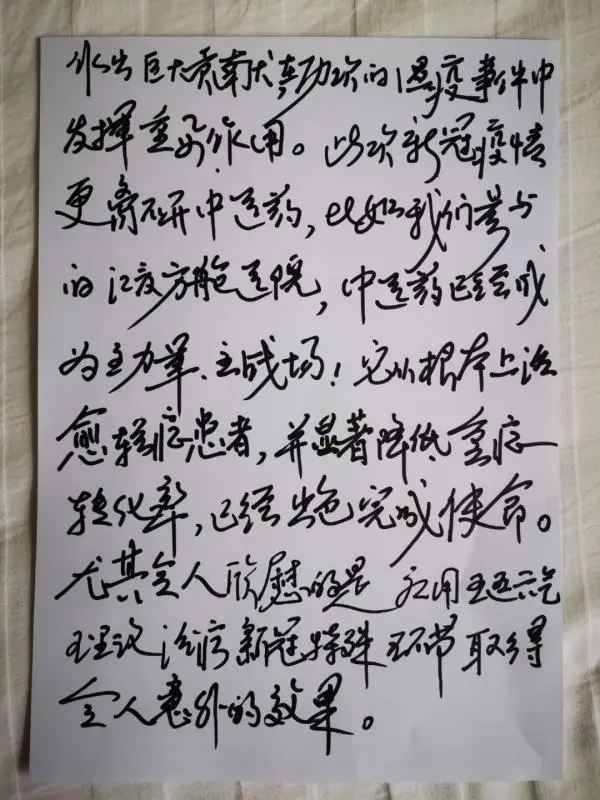 作出巨大贡献 次的温疫事件中
发挥重要作用。此次新冠疫情
更离不开中医药，比如我们参与
的江夏方舱医院，中医药已经成
为主力军、主战场！它从根本上治
愈轻症患者，并显著降低重症
转化率，已经出色完成使命。
尤其令人欣慰的是 应用五运六气
理论治疗新冠特殊环节取得
令人意外的效果。